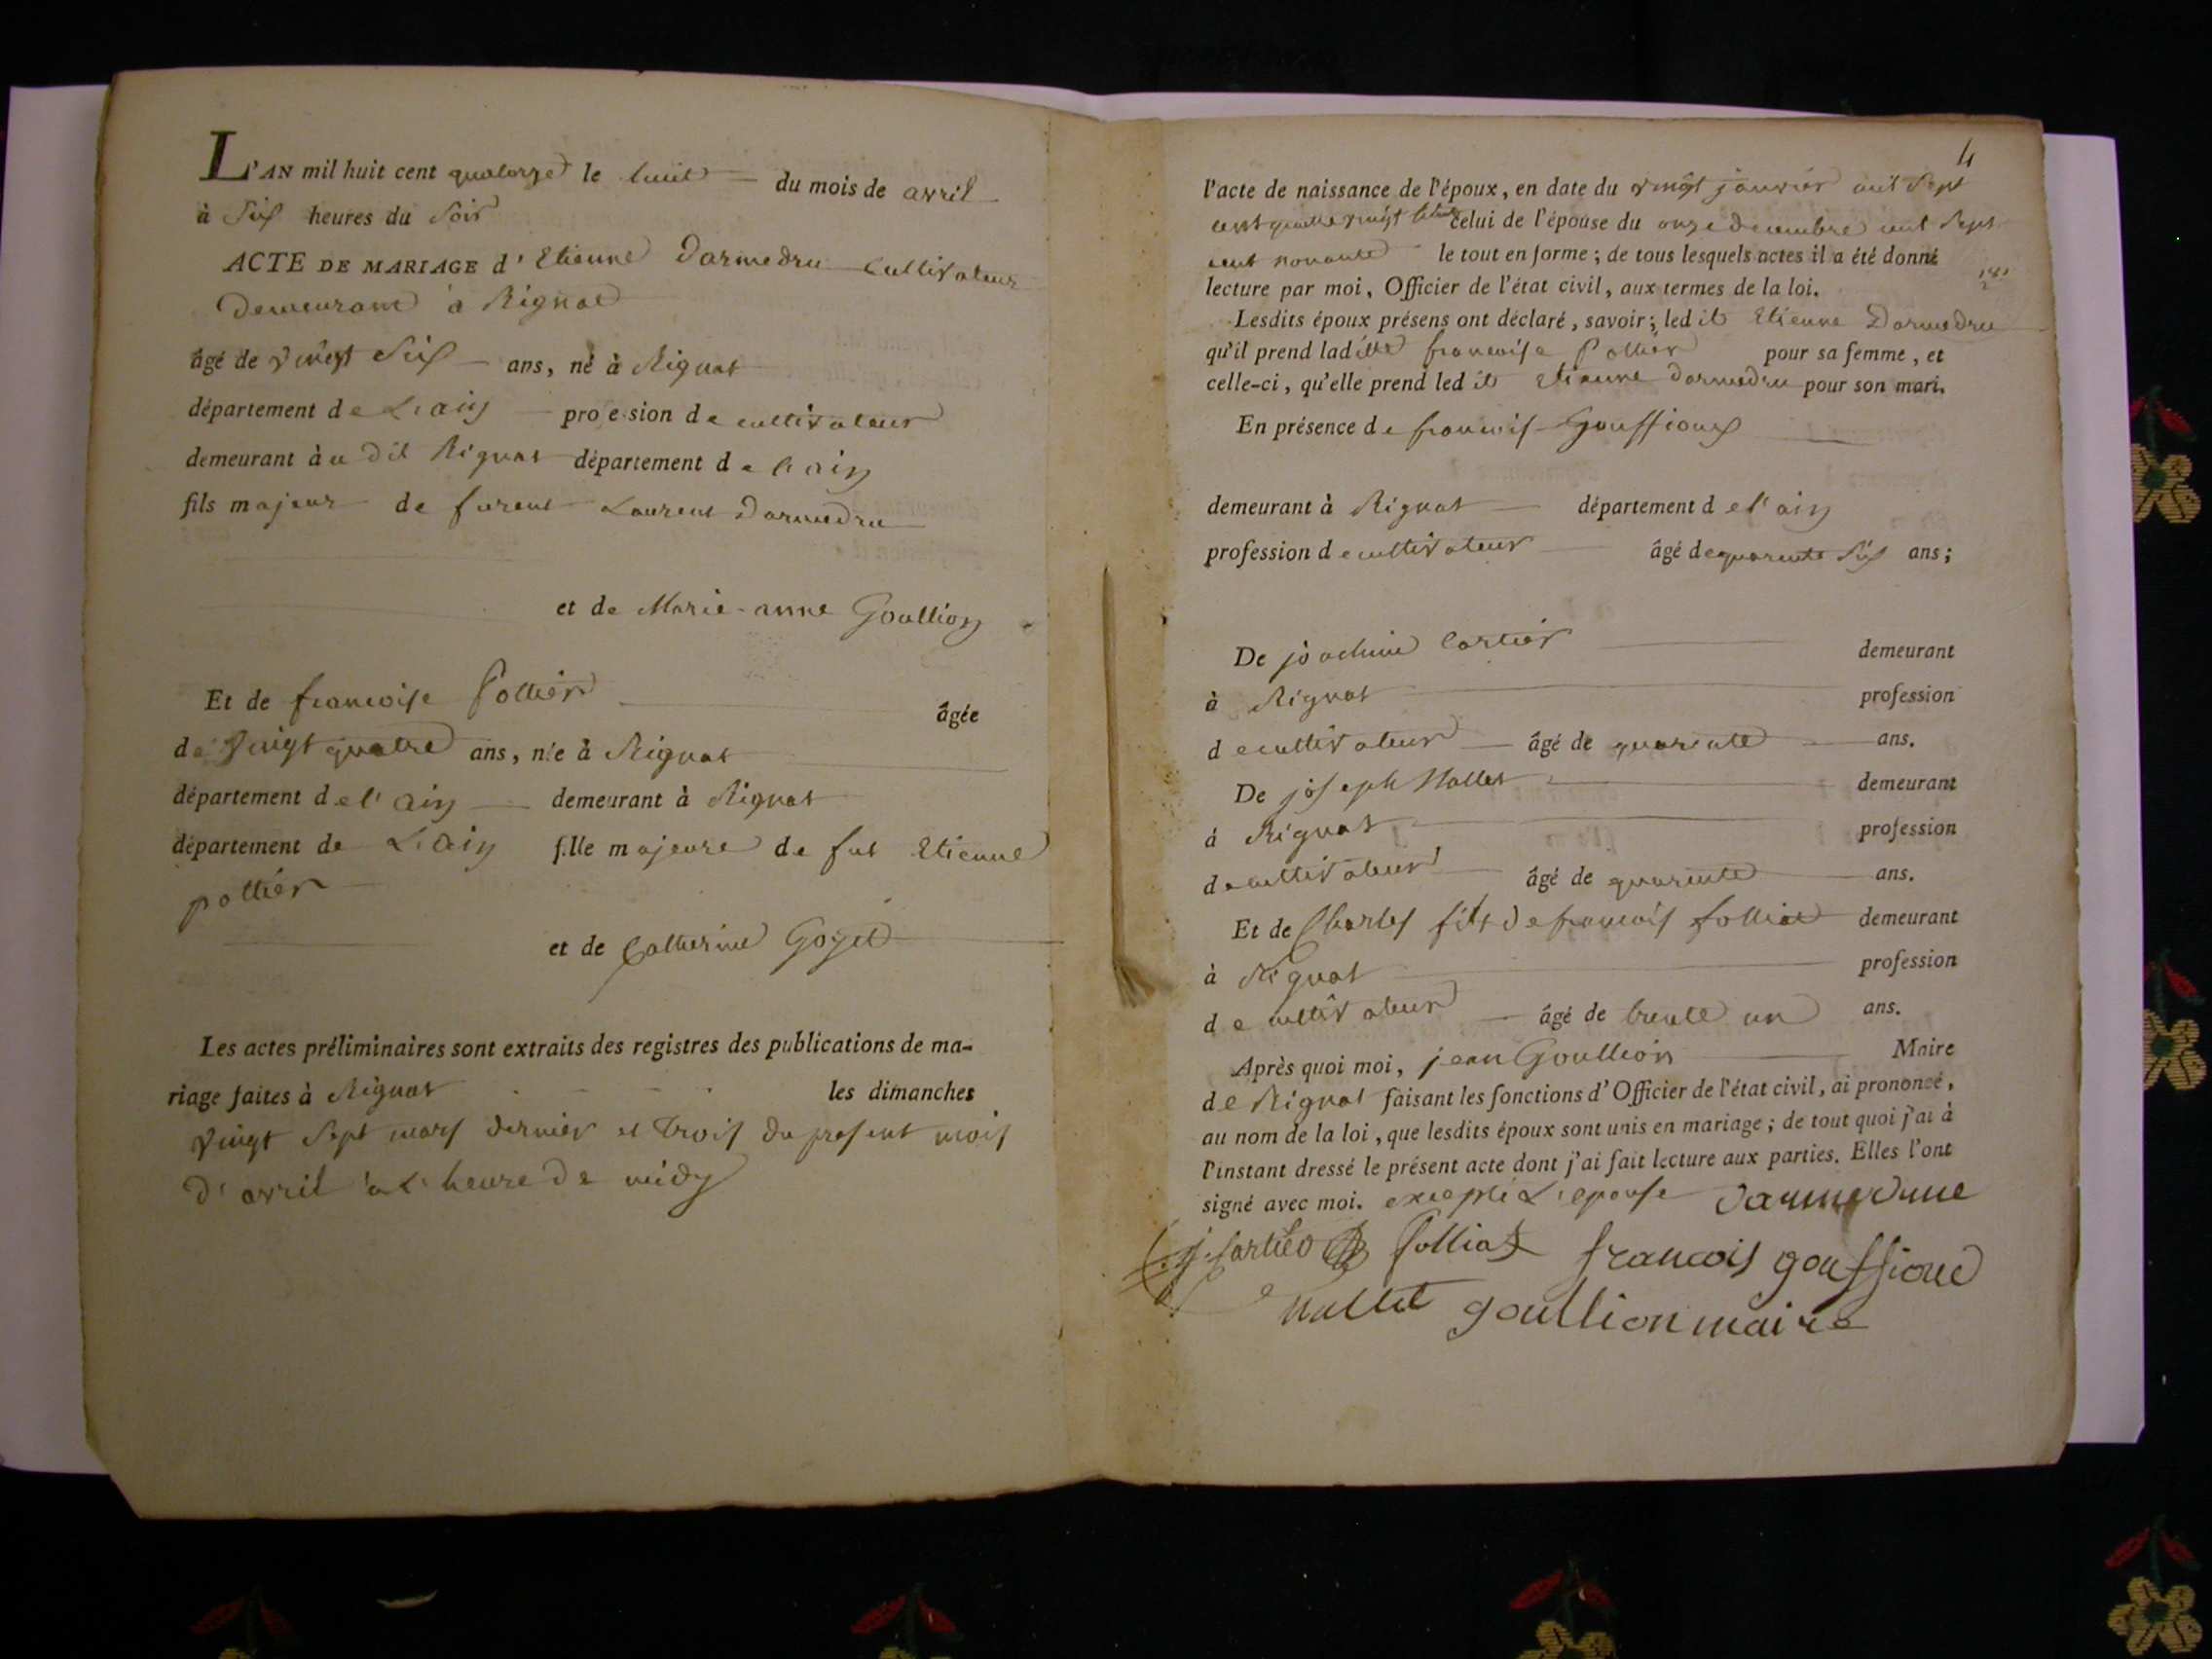 L'AN mil huit cent quatorze le huit du mois de avril
à Six heures du Soir
ACTE DE MARIAGE d'Etienne Darmedru Cultivateur
Demeurant à Rignat
âgé de vingt Six ans, né à Rignat
département de L'ain profession de cultivateur
demeurant àu dit Rignat département de l'ain
fils majeur de furent Laurent Darmedru
et de Marie-anne Goullion
Et de francoise Pottier âgée
de Vingt quatre ans, née à Rignat
département de l'ain demeurant à Rignat
département de L'ain fille majeure de fut Etienne
pottier
et de Catherine Goyet
Les actes préliminaires sont extraits des registres des publications de ma-
riage faites à Rignat les dimanches
vingt Sept mars dernier et trois du present mois
d'avril à L'heure de midy
4
l'acte de naissance de l'époux, en date du vingt janvier mil Sept
cent quatre vingt celui de l'épouse du onze decembre mil Sept
cent nonante le tout en forme; de tous lesquels actes il a été donné
lecture par moi, Officier de l'état civil, aux termes de la loi.
Lesdits époux présens ont déclaré, savoir; ledit Etienne Darmedru
qu'il prend laditte francoise Pottier pour sa femme, et
celle-ci, qu'elle prend ledit Etienne Darmedru pour son mari.
En présence de francois Gouffioux
demeurant à Rignat département de l'ain
profession de cultivateur âgé de quarente Six ans;
De joachim Cartier demeurant
à Rignat profession
de cultivateur âgé de quarente ans.
De joseph Nallet demeurant
à Rignat profession
de cultivateur âgé de quarente ans.
Et de Charles fils de francois folliat demeurant
à Rignat profession
de cultivateur âgé de trente un ans.
Après quoi moi, jean Goullion Maire
de Rignat faisant les fonctions d'Officier de l'état civil, ai prononcé,
au nom de la loi, que lesdits époux sont unis en mariage; de tout quoi j'ai à
l'instant dressé le présent acte dont j'ai fait lecture aux parties. Elles l'ont
signé avec moi. excepté L'epouse Darmedrue
j. Cartier folliat francois gouffioue
nallet goullion maire